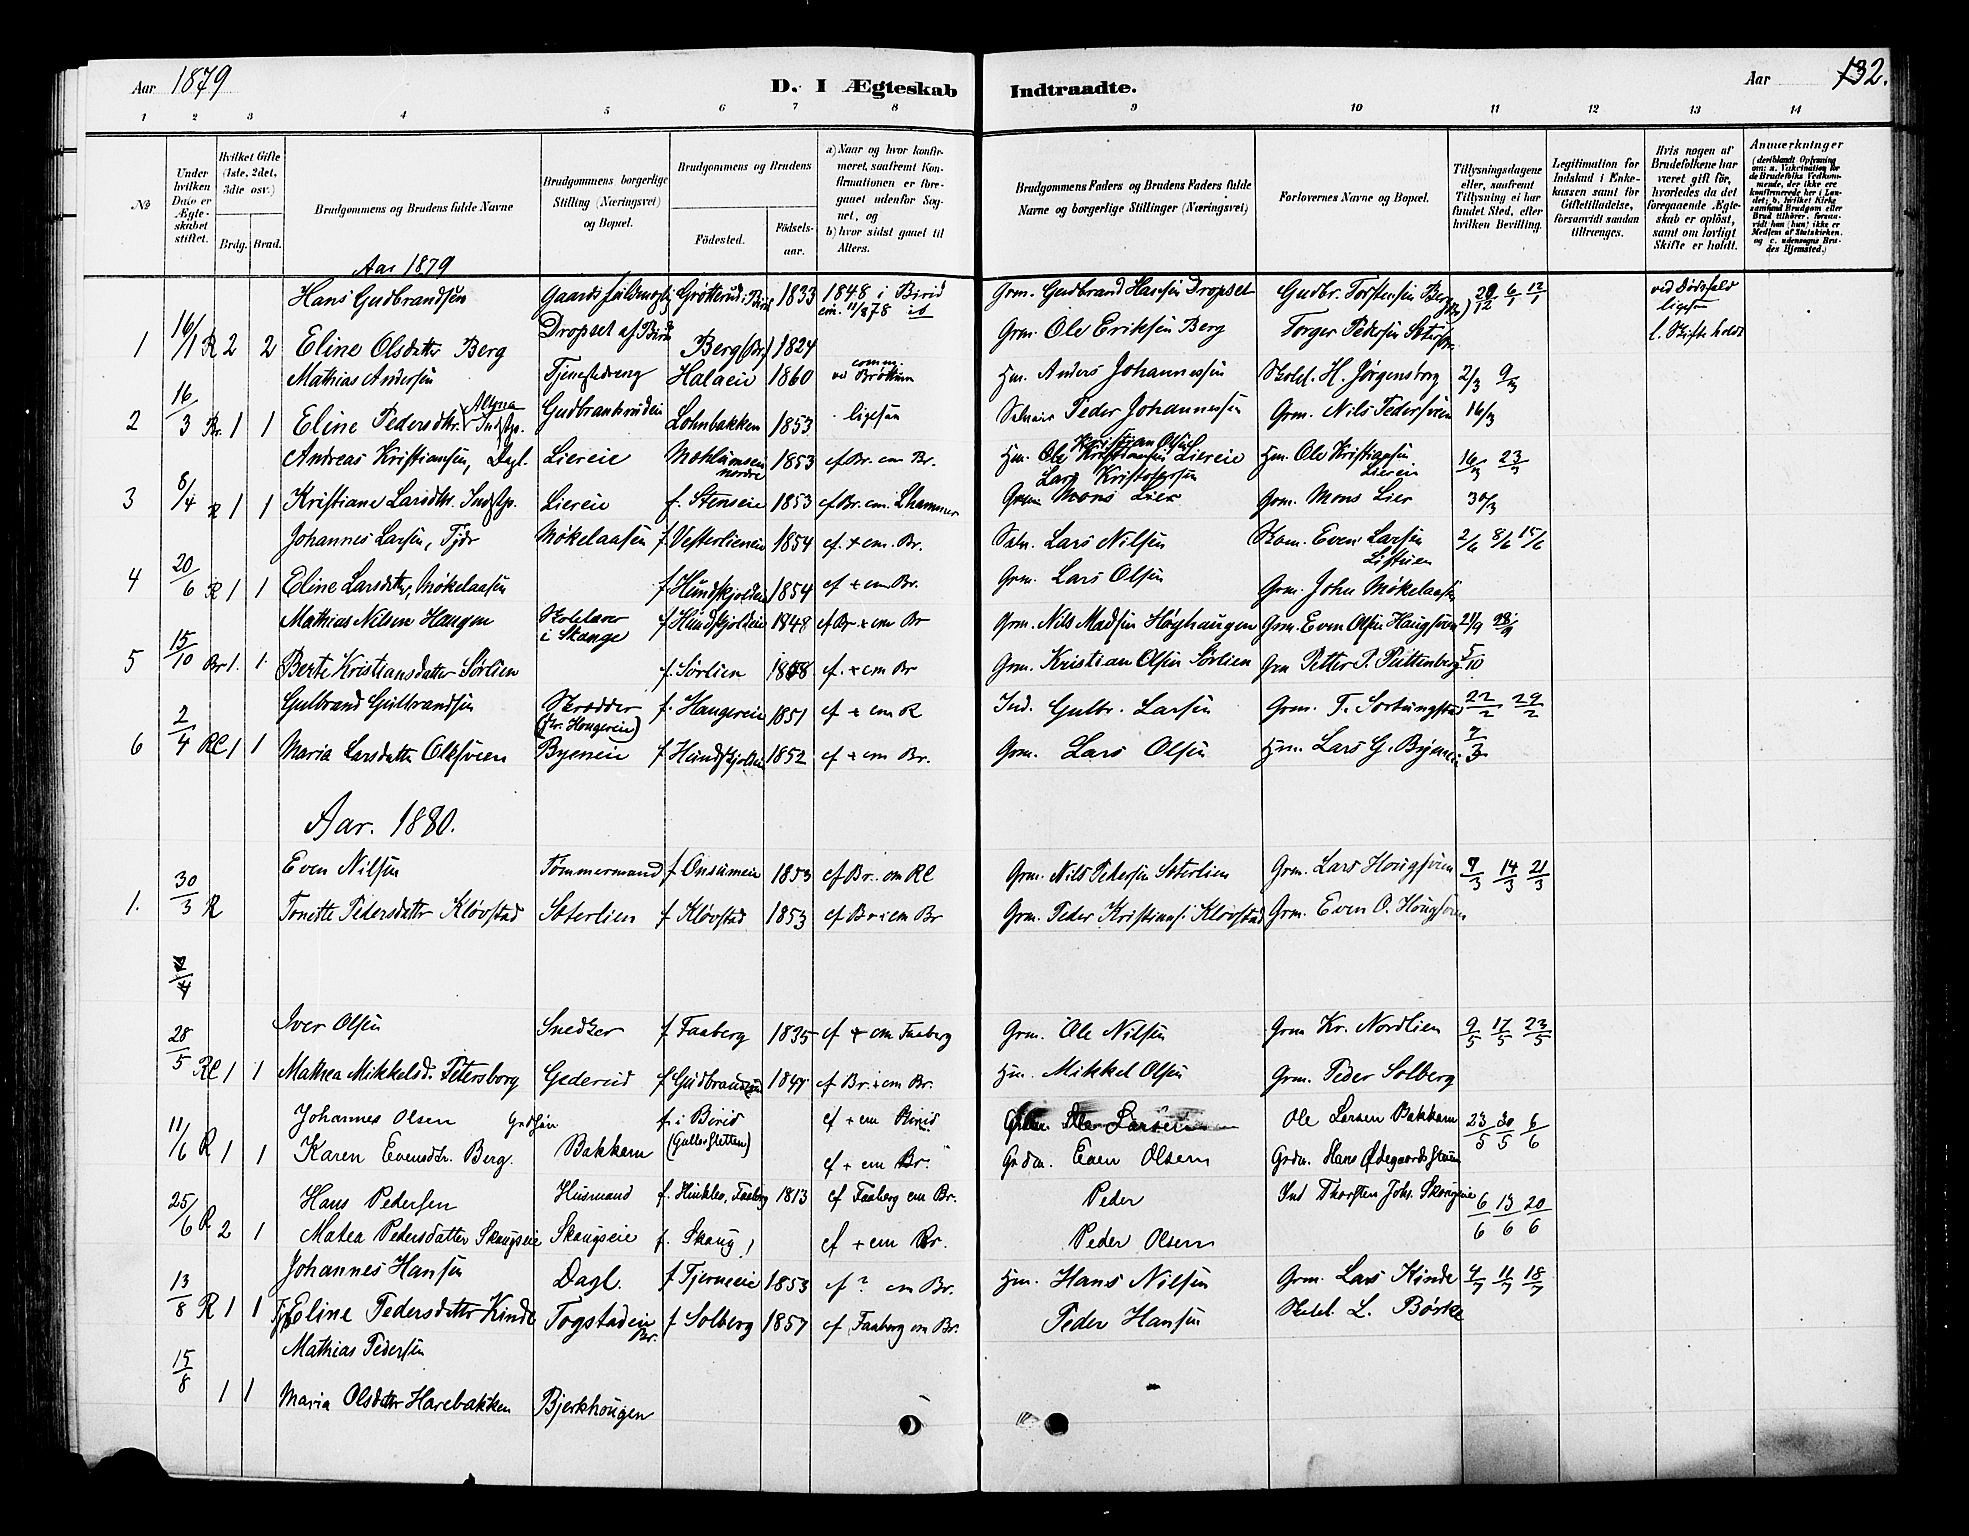 Aar 1879
D. I Ægteskab Indtraadte.
Aar 132.
1 2 3 4 5 6 7 8 9 10 11 12 13 14
No
Under hvilken Dato er Ægteskabet stiftet.
Hvilket Gifte (1ste, 2det, 3die osv.)
Brdg. Brud.
Brudgommens og Brudens fulde Navne
Brudgommens borgerlige Stilling (Næringsvei) og Bopæl.
Brudgommens og Brudens
Fødested.
Fødselsaar.
a) Naar og hvor konfirmeret, saafremt Konfirmationen er foregaaet udenfor Sognet, og
b) hvor sidst gaaet til Alters.
Brudgommens Faders og Brudens Faders fulde Navne og borgerlige Stillinger (Næringsvei)
Forlovernes Navne og Bopæl.
Tillysningsdagene eller, saafremt Tillysning ei har fundet Sted, efter hvilken Bevilling.
Legitimation for Indskud i Enkekassen samt for Giftetilladelse, forsaavidt saadan tiltrænges.
Hvis nogen af Brudefolkene har været gift før, hvorledes da det foregaaende Ægteskab er opløst, samt om lovligt Skifte er holdt.
Anmærkninger (deriblandt Oplysning om: a. Vakcination for de Brudefolks Vedkommende, der ikke ere konfirmerede her i Landet; b. hvilket Kirkesamfund Brudgom eller Brud tilhører, forsaavidt han (hun) ikke er Medlem af Statskirken, og c. udensogns Brudes Hjemsted.)
Aar 1879
Hans Gudbrandsen 1833 1848 i Birid Grm. Gudbrand Hansen Dropset Gudbr. Torstensen 6/1 12/1 ved Dødsfald
1 16/1 R 2 2 Eline Olsdatter Berg Dropset af Birid Berg (Br.) 1824 Grm. Ole Eriksen Berg Torger Pedersen ligesaa
Mathias Andersen Tjenestedreng Halaeie 1860 comm. Brøttum Hm. Anders Johannessen Skolel. H. Jørgensborg 2/3 9/3
2 16/3 Br. 1 1 Eline Pedersdtr. Lohnbakken 1853 ligesaa Peder Johannesen Grm. Nils Pedersveen 16/3
Andreas Kristiansen, Dagl. Liereie 1853 cf Br. em Br. Hm. Kristian Olsen Liereie Hm. Ole Kristiansen Liereie 16/3 23/3
3 8/4 R 1 1 Kristiane Larsdtr. Liereie f. Stenseie 1853 cf Br. em. Lhammer Lars Kristofersen Grm. Mons Lier 30/3
Johannes Larsen, Tjdr Møkelaasen f. Vesterlieneie 1854 cf. + em. Br. Lars Nilsen Even Larsen 2/6 8/6 15/6
4 20/6 R 1 1 Eline Larsdatter, Møkelaasen f. 1854 cf + em Br. Grm. Lars Olsen Grm. John Møkelaasen
Mathias Nilsen Haugen Skolelærer i Stange f. 1848 cf Br + em Br Grm. Nils Madsen Høghaugen Grm. Even Olsen Haugsveen 21/9 28/9
5 15/10 Br 1. 1. Berte Kristiansdatter Sørlien f. Sørlien cf. + em Br Grm. Kristian Olsen Sørlien Grm Petter P. 5/10
Gulbrand Gulbrandsen Skrædder f. Haugereie 1851 cf + em R Ind. Gulbr. Larsen Grm. T. Sortungstad 22/2 29/2
6 2/4 Rl 1 1 Maria Larsdatter Bjerneie f 1852 cf + em Br. Grm. Lars Olsen Hm. Lars G. 7/3
Aar. 1880.
Even Nilsen Tømmermand f Onsumeie 1853 cf Br. em Rl Grm. Nils Petersen Sæterlien Grm. Lars Hougsveen 7/3 14/3 21/3
1. 30/3 R Tonette Petersdatter Kløvstad Sæterlien f Kløvstad 1853 cf Br + em Br Grm. Peder Kristians. Kløvstad Grm. Even O. Hougsveen
Iver Olsen Snedker f Faaberg 1835 cf + em Faaberg Grm. Ole Nilsen Grm Kr. Nordlien 9/5 17/5 23/5
28/5 Rl 1 1 Mathea Mikkelsd. Petersborg Gederud f 1847 cf Br. + em Br. Hm. Mikkel Olsen Grm. Peder Solberg
Johannes Olsen f. i Birid cf + em Birid Ole Larsen Ole Larsen Bakkem 23/5 30/5 6/6
11/6 R 1 1 Karen Evensdtr. Berg. Bakkem cf + em Br. Grdm. Even Olsen Grdm. Hans Ødegaardsstuen
Hans Pedersen Husmand f. Faaberg 1813 cf Faaberg em Br. Peder Ind Thorsten Johs. Skougeie 6/6 13/6 20/6
25/6 R 2 1 Matea Pedersdatter Skaugseie Skaugseie f. Skaug cf + em Br. Peder Olsen
Johannes Hansen Dagl. f Tjerneeie 1853 cf ? em Br. Hm. Hans Nilsen Grm. Lars Kinde 4/7 11/7 18/7
13/8 R 1 1 Eline Pedersdatter Kinde Togstadeie Br. f Solberg 1857 cf Faaberg em Br. Peder Hansen Skolel L. Børke
Mathias Pedersen
15/8 1 1 Maria Olsdatter Harebakken Bjerkhougen